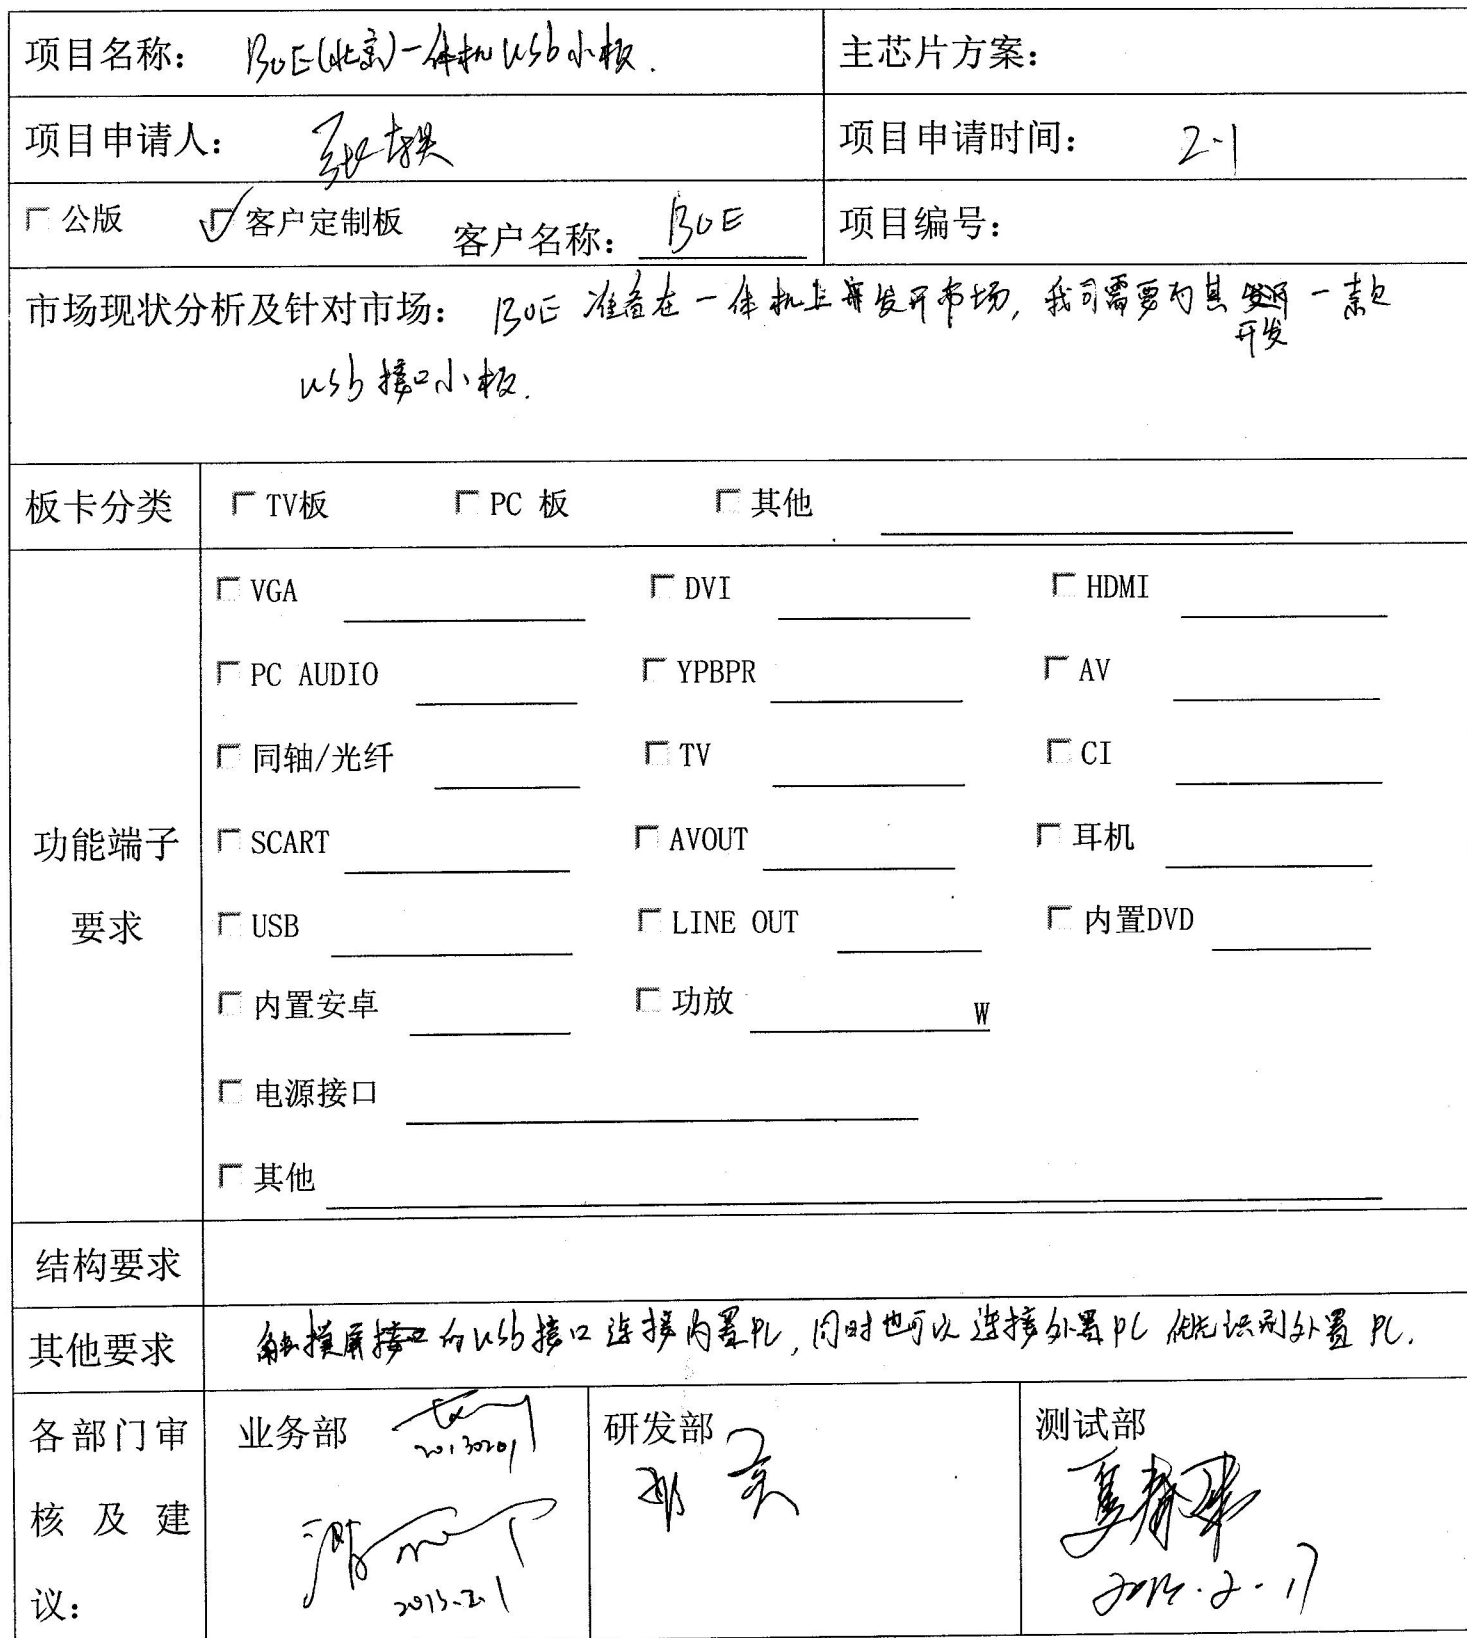 项目名称： BOE(北京)一体机usb小板.
主芯片方案：
项目申请人：
项目申请时间： 2-1
公版 客户定制板 客户名称： BOE
项目编号：
市场现状分析及针对市场： BOE 准备在一体机上再发开市场, 我司需要为其 开发 一款
usb接口小板.
板卡分类
TV板 PC 板 其他
功能端子
要求
VGA DVI HDMI
PC AUDIO YPBPR AV
同轴/光纤 TV CI
SCART AVOUT 耳机
USB LINE OUT 内置DVD
内置安卓 功放 W
电源接口
其他
结构要求
其他要求
触摸屏接口的usb接口连接内置PC, 同时也可以连接外置PC 优先识别外置PC.
各部门审
核及建
议：
业务部
20130201
2013.2.1
研发部
测试部